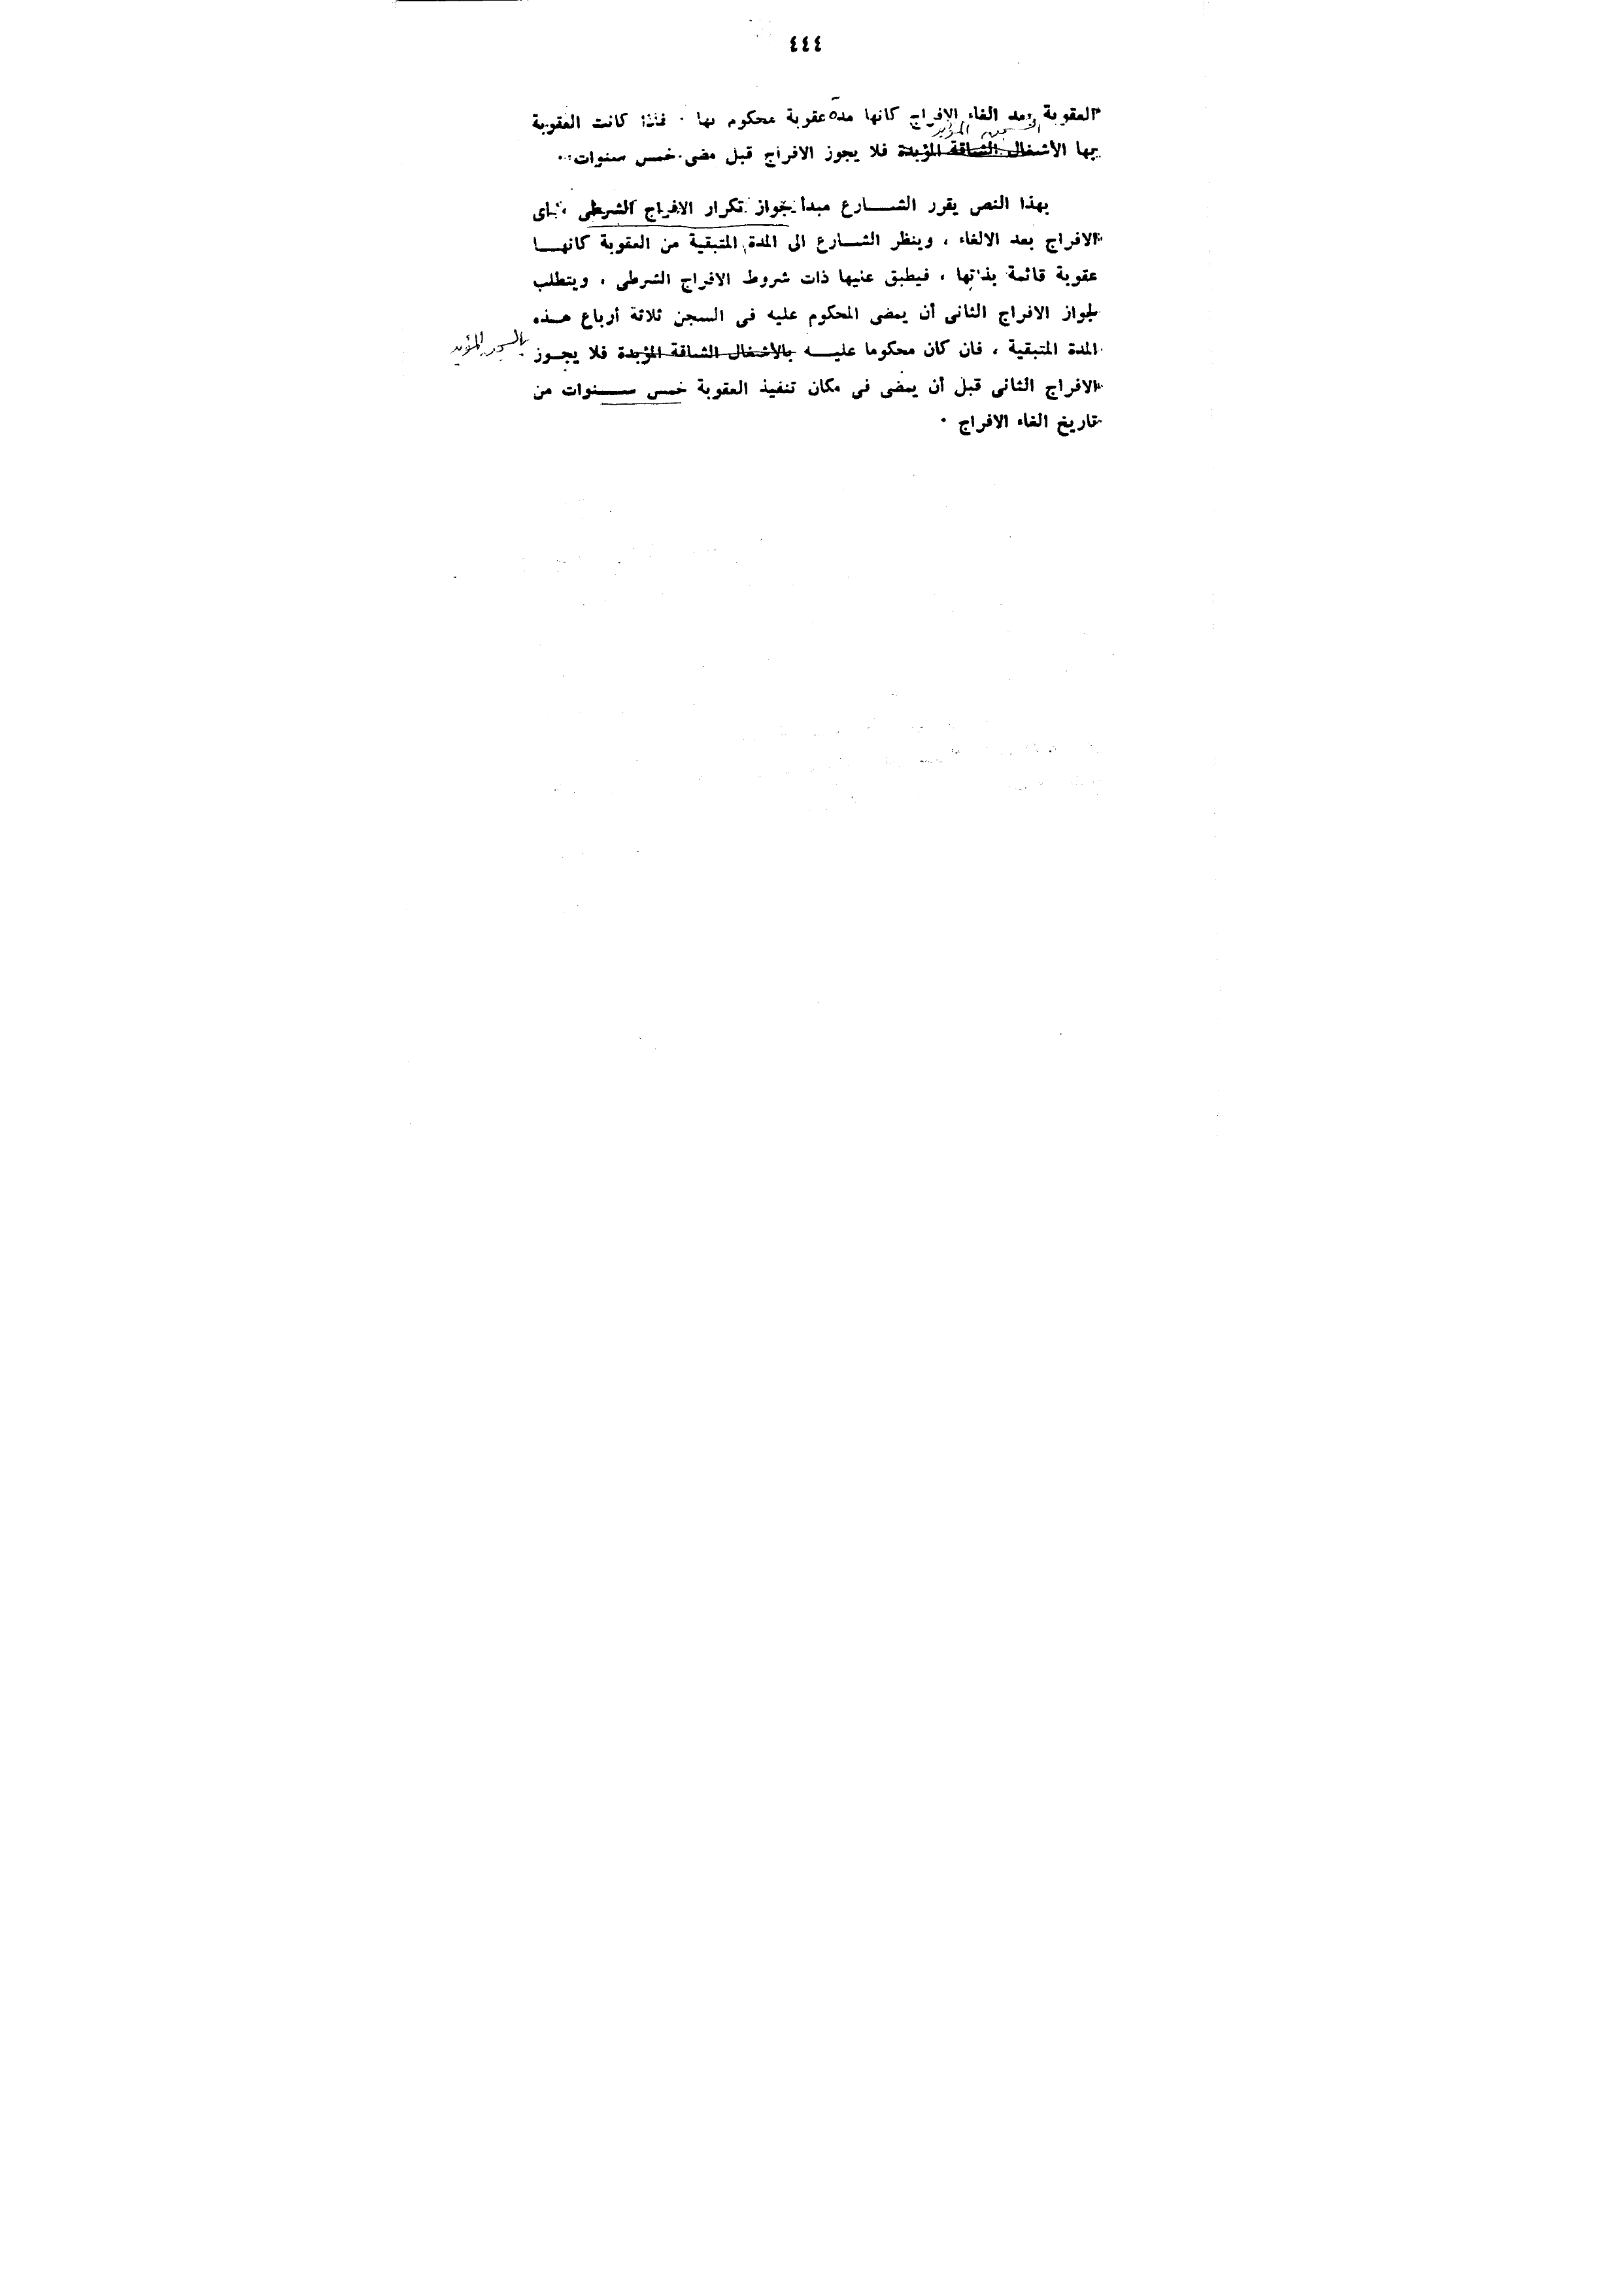 ٤٤٤
العقوبة بعد الغاء الافراج كانها مدة عقوبة محكوم بها ٠ فاذا كانت العقوبة
السجن المؤبد
بها الأشغال الشاقة المؤبدة فلا يجوز الافراج قبل مضى خمس سنوات ٠
بهذا النص يقرر الشارع مبدأ جواز تكرار الافراج الشرطى ، أى
الافراج بعد الالغاء ، وينظر الشارع الى المدة المتبقية من العقوبة كانها
عقوبة قائمة بذاتها ، فيطبق عليها ذات شروط الافراج الشرطى ، ويتطلب
لجواز الافراج الثانى أن يمضى المحكوم عليه فى السجن ثلاثة أرباع هذه
المدة المتبقية ، فان كان محكوما عليه بالأشغال الشاقة المؤبدة فلا يجوز
بالسجن المؤبد
الافراج الثانى قبل أن يمضى فى مكان تنفيذ العقوبة خمس سنوات من
تاريخ الغاء الافراج ٠